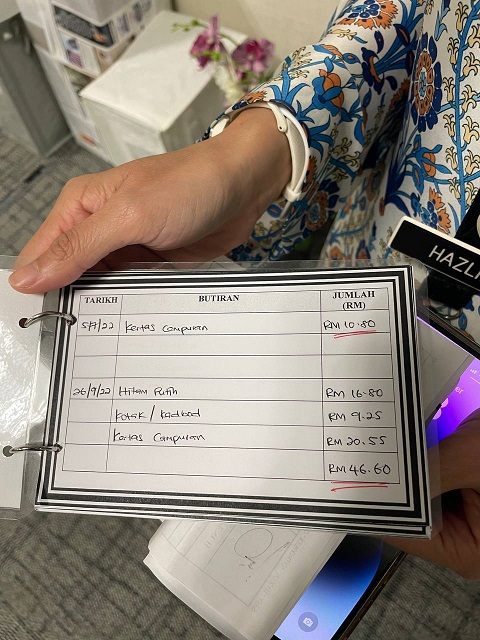 TARIKH BUTIRAN JUMLAH (RM)
5/7/22 Kertas Campuran RM 10.80
26/9/22 Hitam Putih RM 16.80
Kotak / Kadbod RM 9.25
Kertas Campuran RM 20.55
RM 46.60
HAZLI